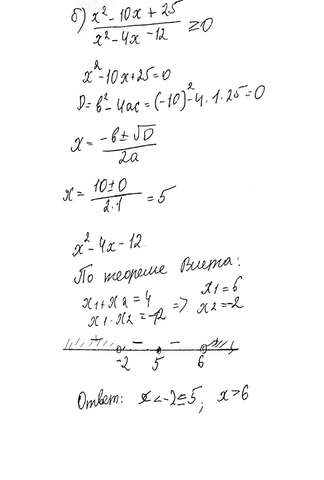 б) x² - 10x + 25 / x² - 4x - 12 ≥ 0
x² - 10x + 25 = 0
D = b² - 4ac = (-10)² - 4·1·25 = 0
x = -b ± √D / 2a
x = 10 ± 0 / 2·1 = 5
x² - 4x - 12
По теореме Виета:
x1 + x2 = 4 => x1 = 6
x1 · x2 = -12 x2 = -2
+ - - +
-2 5 6
Ответ: x < -2 = 5; x > 6